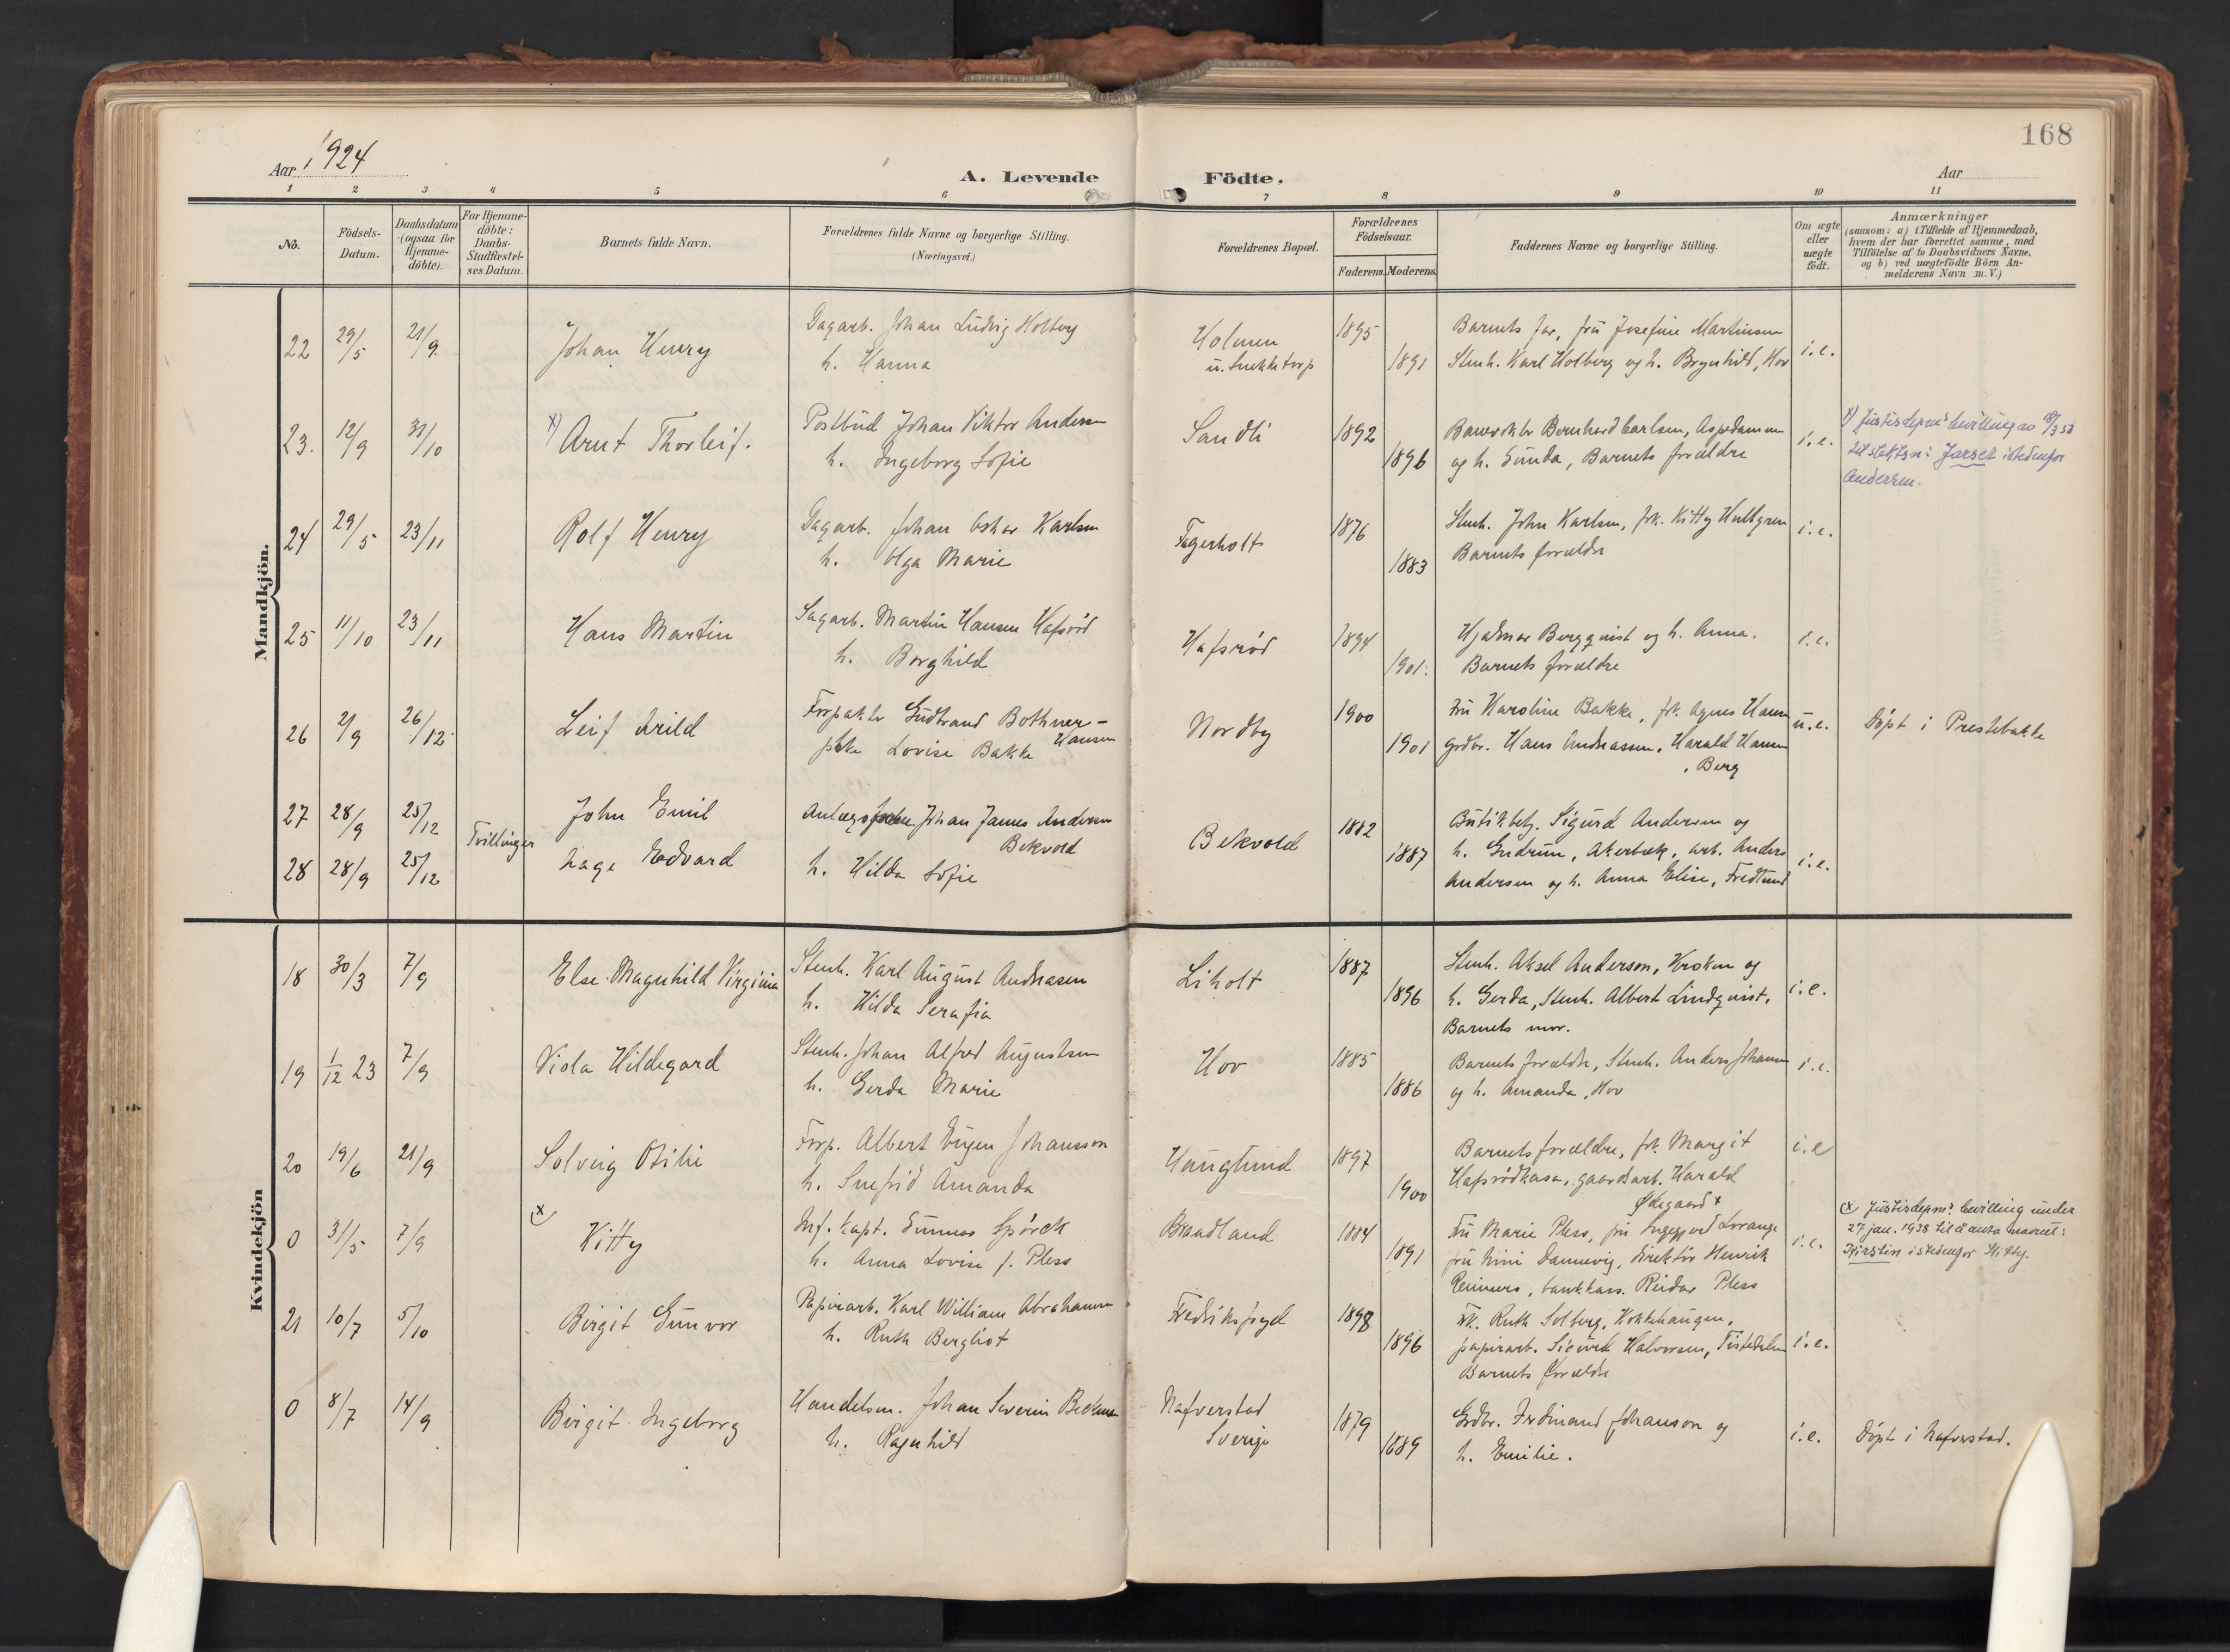 168
Aar 1924
A. Levende Födte.
Aar
1 2 3 4 5 6 7 8 9 10 11
No.
Födsels-
Datum.
Daabsdatum
(ogsaa for
Hjemme-
döbte).
For Hjemme-
döbte:
Daabs-
Stadfæstel-
ses Datum.
Barnets fulde Navn.
Forældrenes fulde Navne og borgerlige Stilling.
(Næringsvei.)
Forældrenes Bopæl.
Forældrenes
Födselsaar.
Faderens. Moderens.
Faddernes Navne og borgerlige Stilling.
Om ægte
eller
uægte
födt.
Anmærkninger
(saasom: a) i Tilfælde af Hjemmedaab,
hvem der har forrettet samme, med
Tilföielse af to Daabsvidners Navne,
og b) ved uægtefödte Börn An-
melderens Navn m. V.)
Mandkjön.
22 29/5 21/9 Johan Henry
Dagarb. Johan Ludvig Holberg
h. Hanna
Holmen
1895
1891
Barnets far, fru Josefine Martinsen
Stenh. Karl Holberg og h. Brynhild, Hov
i.e.
23. 12/9 31/10 x) Arnt Thorleif.
Postbud Johan Viktor Andersen
h. Ingeborg Sofie
Sandli
1892
1896
Banevokter Bernhard Carlsen, Aspedammen
og h. Gunda, Barnets forældre
i.e.
x) Justisdepm's bevilling av 18/3 50
til slektsn: Jarset istedenfor
Andersen.
24 29/5 23/11 Rolf Henry
Dagarb. Johan Oskar Karlsen
h. Olga Marie
Fagerholt
1876
1883
Stenh. John Karlsen, frk. Kitty Hultgren
Barnets forældre
i.e.
25 11/10 23/11 Hans Martin
Sagarb. Martin Hansen Hafsrød
h. Borghild
Hafsrød
1894
1901.
Hjalmar Bergquist og h. Anna.
Barnets forældre
i.e.
26 2/9 26/12 Leif Arild
Forpakter Gudbrand Bothner-
Hansen
pike Lovise Bakke
Nordby
1900
1901
Fru Karoline Bakke, frk. Agnes Hansen
Grdbr. Hans Andreassen, Harald Hansen
, Berg
u.e.
Döpt i Prestebakke
27 28/9 25/12 John Emil
28 28/9 25/12 Hage Edvard
Tvillinger
Johan James Andersen
Bekvold
h. Hilda Sofie
Bekvold
1882
1887
Butikbetj. Sigurd Andersen og
h. Gudrun, Akerbæk, arb. Anders
Andersen og h. Anna Elise, Fredlund
i.e.
Kvindekjön
18 30/3 7/9 Else Magnhild Virginia
Stenh. Karl August Andreasen
h. Hilda Serafia
Liholt
1887
1896
Stenh. Aksel Anderson, Kroken og
h. Gerda, Stenh. Albert Lindquist,
Barnets mor.
i.e.
19 1/12 23 7/9 Viola Hildegard
Stenh. Johan Alfred Augustsen
h. Gerda Marie
Hov
1885
1886
Barnets forældre, Stenh. Anders Johansen
og h. Amanda, Hov
i.e.
20 19/6 21/9 Solveig Otilie
Forp. Albert Eugen Johansson
h. Snefrid Amanda
Hauglund
1897
1900
Barnets forældre, frk. Margit
Hafsrødkasa, gaardsarb. Harald
Ødegaard x
i.e
0 31/5 7/9 x) Kitty
Inf. kapt. Gunnar Spörck
h. Anna Lovise f. Pless
Brandland
1884
1891
Fru Marie Pless, fru Ingegjerd Lorange
fru Mimi Dannevig, Direktör Henrik
Reimers, bankkass. Reidar Pless
i.e.
x) Justisdepm's bevilling under
27 jan. 1938 til å anta navnet:
Kirsten istedenfor Kitty.
21 10/7 5/10 Birgit Gunvor
Papirarb. Karl William Abrahamsen
h. Ruth Bergliot
Fredriksfryd
1898
1896
Frk. Ruth Solberg, Kokkehaugen,
papirarb. Sigurd Halvorsen, Tistedalen
Barnets forældre
i.e.
0 8/7 14/9 Birgit Ingeborg
Handelsm. Johan Severin Beckman
h. Ragnhild
Nafverstad
Sverige
1879
1889
Grdbr. Ferdinand Johanson og
h. Emilie.
i.e.
Döpt i Nafverstad.